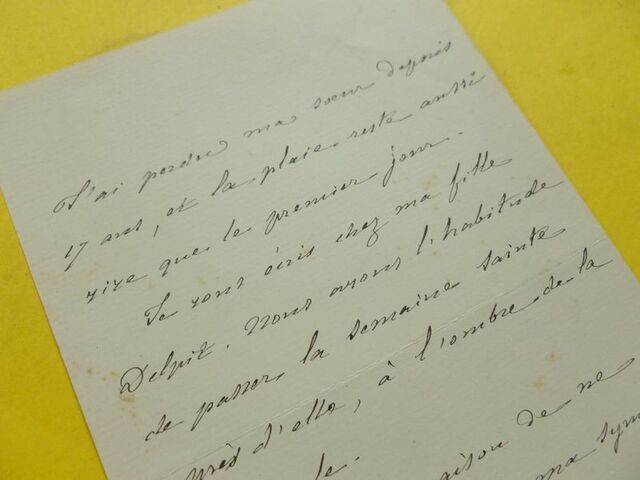 J'ai perdu ma soeur depuis
17 ans, et la plaie reste aussi
vive que le premier jour.
Je vous écris chez ma fille
Delpit. Nous avons l'habitude
de passer la semaine sainte
près d'elle, à l'ombre de la
de ne
ma sym